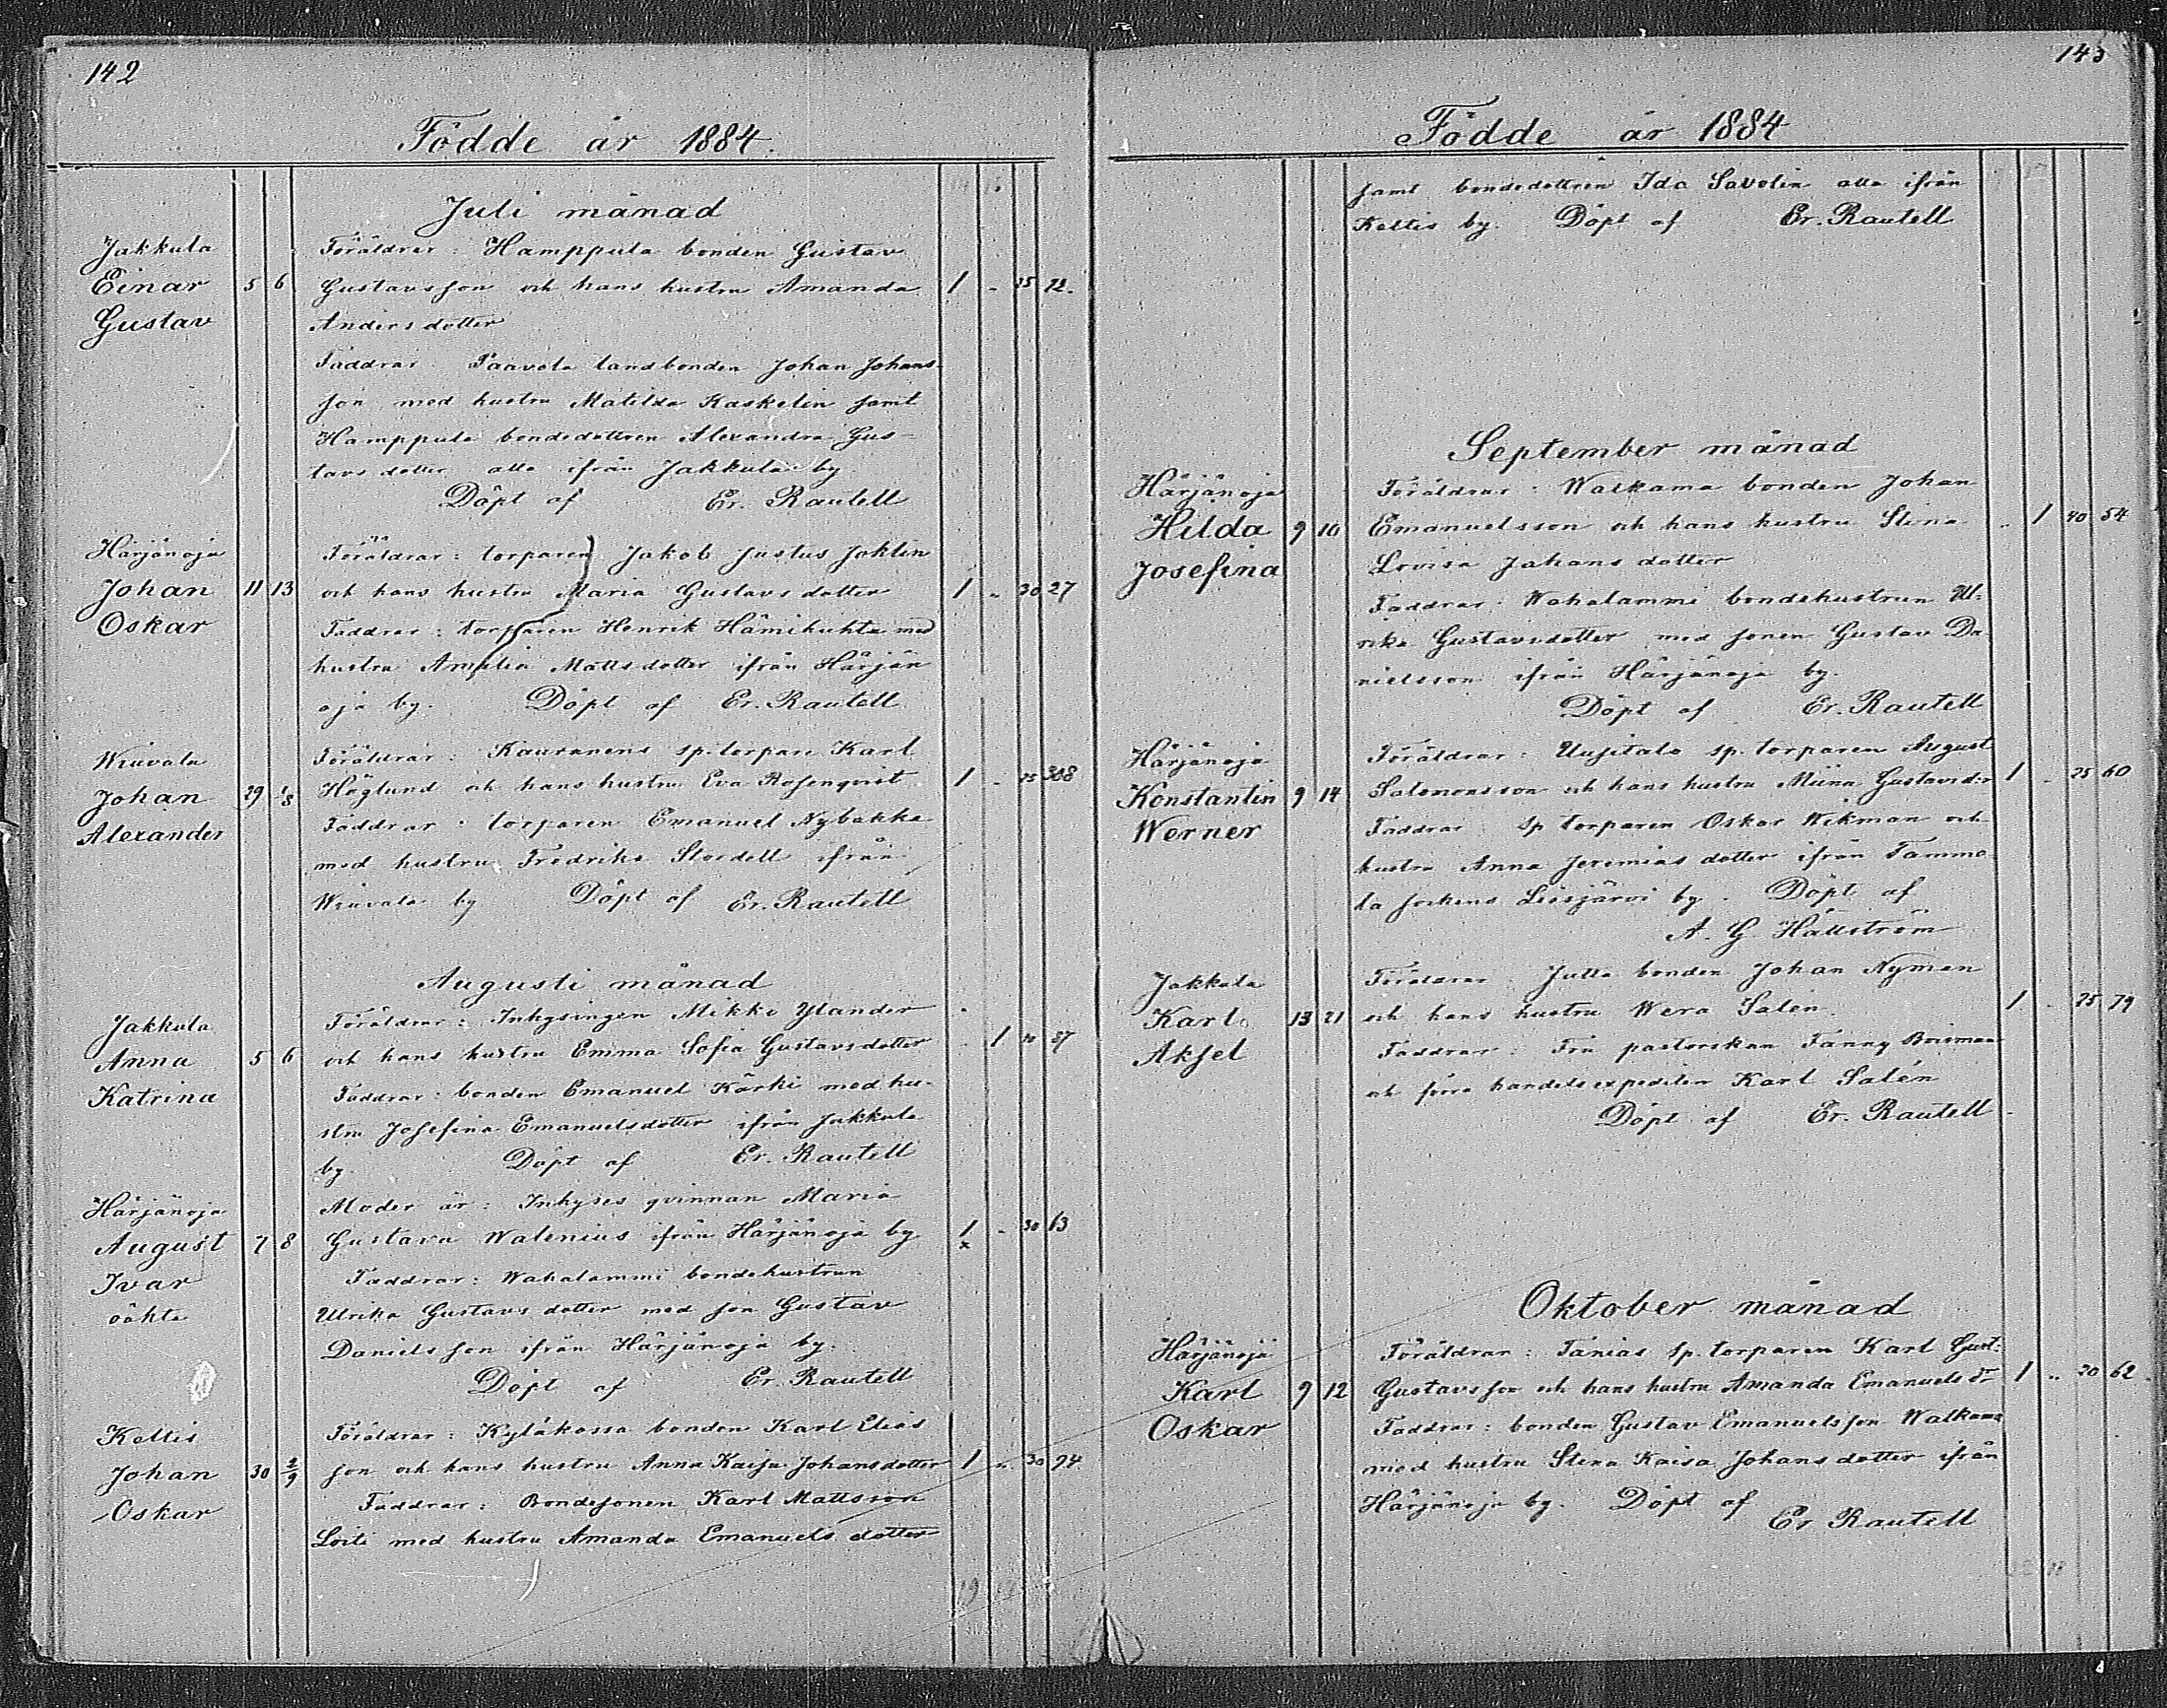 142
Födde år 1884.
Juli månad
Jakkula
Föräldrar: Hamppula bonden Gustav
Einar 5 6 Gustavsson och hans hustru Amanda 1 - 25 72.
Gustav Andersdotter
Faddrar Paavola landbonden Johan Johans-
son med hustru Matilda Kaskelin samt
Hamppula bondedottren Alexandra Gus-
tavsdotter alla ifrån Jakkula by
Döpt af Er. Rautell
Härjänoja Föräldrar: torparen Jakob Justus Joklin
Johan 11 13 och hans hustru Maria Gustavsdotter 1 - 30 27
Oskar Faddrar: torparen Henrik Hämikuhta med
hustru Amalia Mattsdotter ifrån Härjän
oja by. Döpt af Er. Rautell
Wiuvala Föräldrar: Kauranens sp. torpare Karl
Johan 29 1/8 Höglund och hans hustru Eva Rosenqvist 1 - 25 308
Alexander Faddrar: torparen Emanuel Nybakka
med hustru Fredrika Stordell ifrån
Wiuvala by Döpt af Er. Rautell
Augusti månad
Jakkula Föräldrar: Inhysingen Mikki Ylander
Anna 5 6 och hans hustru Emma Sofia Gustavsdotter - 1 57
Katrina Faddrar: bonden Emanuel Kärki med hu-
stru Josefina Emanuelsdotter ifrån Jakkula
by. Döpt af Er. Rautell
Härjänoja Moder är: Inhyses qvinnan Maria
August 7 8 Gustava Walenius ifrån Härjänoja by 1 x - 30 13
Ivar Faddrar: Wahalammi bondehustrun
oäkta Ulrika Gustavsdotter med son Gustav
Danielsson ifrån Härjänoja by.
Döpt af Er. Rautell
Keltis Föräldrar: Kyläkossa bonden Karl Elias
Johan 30 2/9 son och hans hustru Anna Kaisa Johansdotter 1 - 30 94
Oskar Faddrar: Bondesonen Karl Mattsson
med hustru Amanda Emanuelsdotter
143
Födde år 1884
samt bondedottren Ida Savolin alla ifrån
Keltis by. Döpt af Er. Rautell
September månad
Härjänoja Föräldrar: Walkama bonden Johan
Hilda 9 10 Emanuelsson och hans hustru Stina - 1 40 54
Josefina Lovisa Johansdotter
Faddrar: Wahalammi bondehustrun Ul-
rika Gustavsdotter med sonen Gustav Da-
nielsson ifrån Härjänoja by.
Döpt af Er. Rautell
Härjänoja Föräldrar: Uusitalo sp. torparen August
Konstantin 9 14 Salomonsson och hans hustru Miina Gustavsd:r 1 - 25 60
Werner Faddrar Sp torparen Oskar Wikman och
hustru Anna Jeremiasdotter ifrån Tamme
la sockens Liesjärvi by. Döpt af
A. G. Hällström
Jakkula Föräldrar: Jutla bonden Johan Nyman
Karl 13 21 och hans hustru Wera Salén 1 - 25 79
Aksel Faddrar: Fru pastorskan Fanny
och förra handelsexpediten Karl Salén
Döpt af Er. Rautell
Oktober månad
Härjänoja Föräldrar: Tanias sp. torparen Karl Gust:
Karl 9 12 Gustavsson och hans hustru Amanda Emanuelsdr 1 - 20 62
Oskar Faddrar: bonden Gustav Emanuelsson Walkama
med hustru Stina Kaisa Johansdotter ifrån
Härjänoja by. Döpt af
Er Rautell